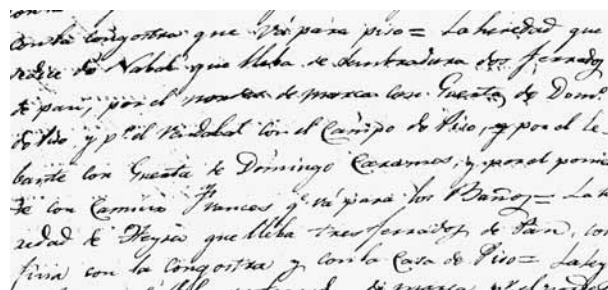 con la congostra que vá para piso = La heredad que
se dice do Nabal que lleba de sembradura dos ferrados
de pan, por el de marca con Guerta de Dom.º
do Piso y p.r el Vendabal con el Campo de Piso, y por el le
bante con Guerta de Domingo Caramés, y por el ponien
te con Camino Frances q.e vá para los Baños = La h
redad de Heyra que lleba tres ferrados de Pan, con
fina con la Congostra y con la Casa de Piso = La ey
de marca, p.r el